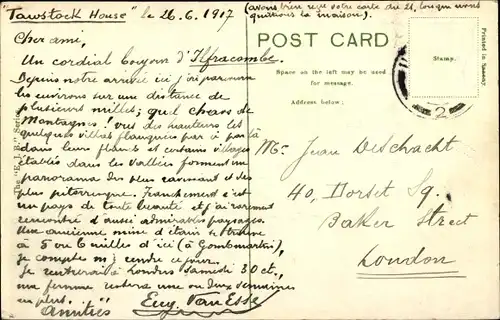 "Tawstock House" le 26.6.1917
(avons bien reçu votre carte du 21, lorsque nous
quittions la maison).
Cher ami,
Un cordial bonjour d'Ilfracombe.
Depuis notre arrivée ici j'ai parcouru
les environs sur une distance de
plusieurs milles; quel chaos de
Montagnes! vus des hauteurs les
quelques villas flanquées par ci par là
dans leurs flancs et certains villages
établis dans les vallées forment un
panorama des plus ravissant et des
plus pittoresque. Franchement c'est
un pays de toute beauté et j'ai rarement
rencontré d'aussi admirables paysages.
Une ancienne mine d'étain se trouve
à 5 ou 6 milles d'ici (à Combmartin),
je compte m'y rendre ce jour.
Je rentrerai à Londres samedi 30 ct.,
ma femme restera une ou deux semaines
en plus.
Amitiés
Eug. Van Esse
POST CARD
Space on the left may be used
for message.
Address below:
Stamp.
Printed in Saxony.
2
The Series
Mr. Jean DeSchacht
40, Dorset Sq.
Baker Street
London